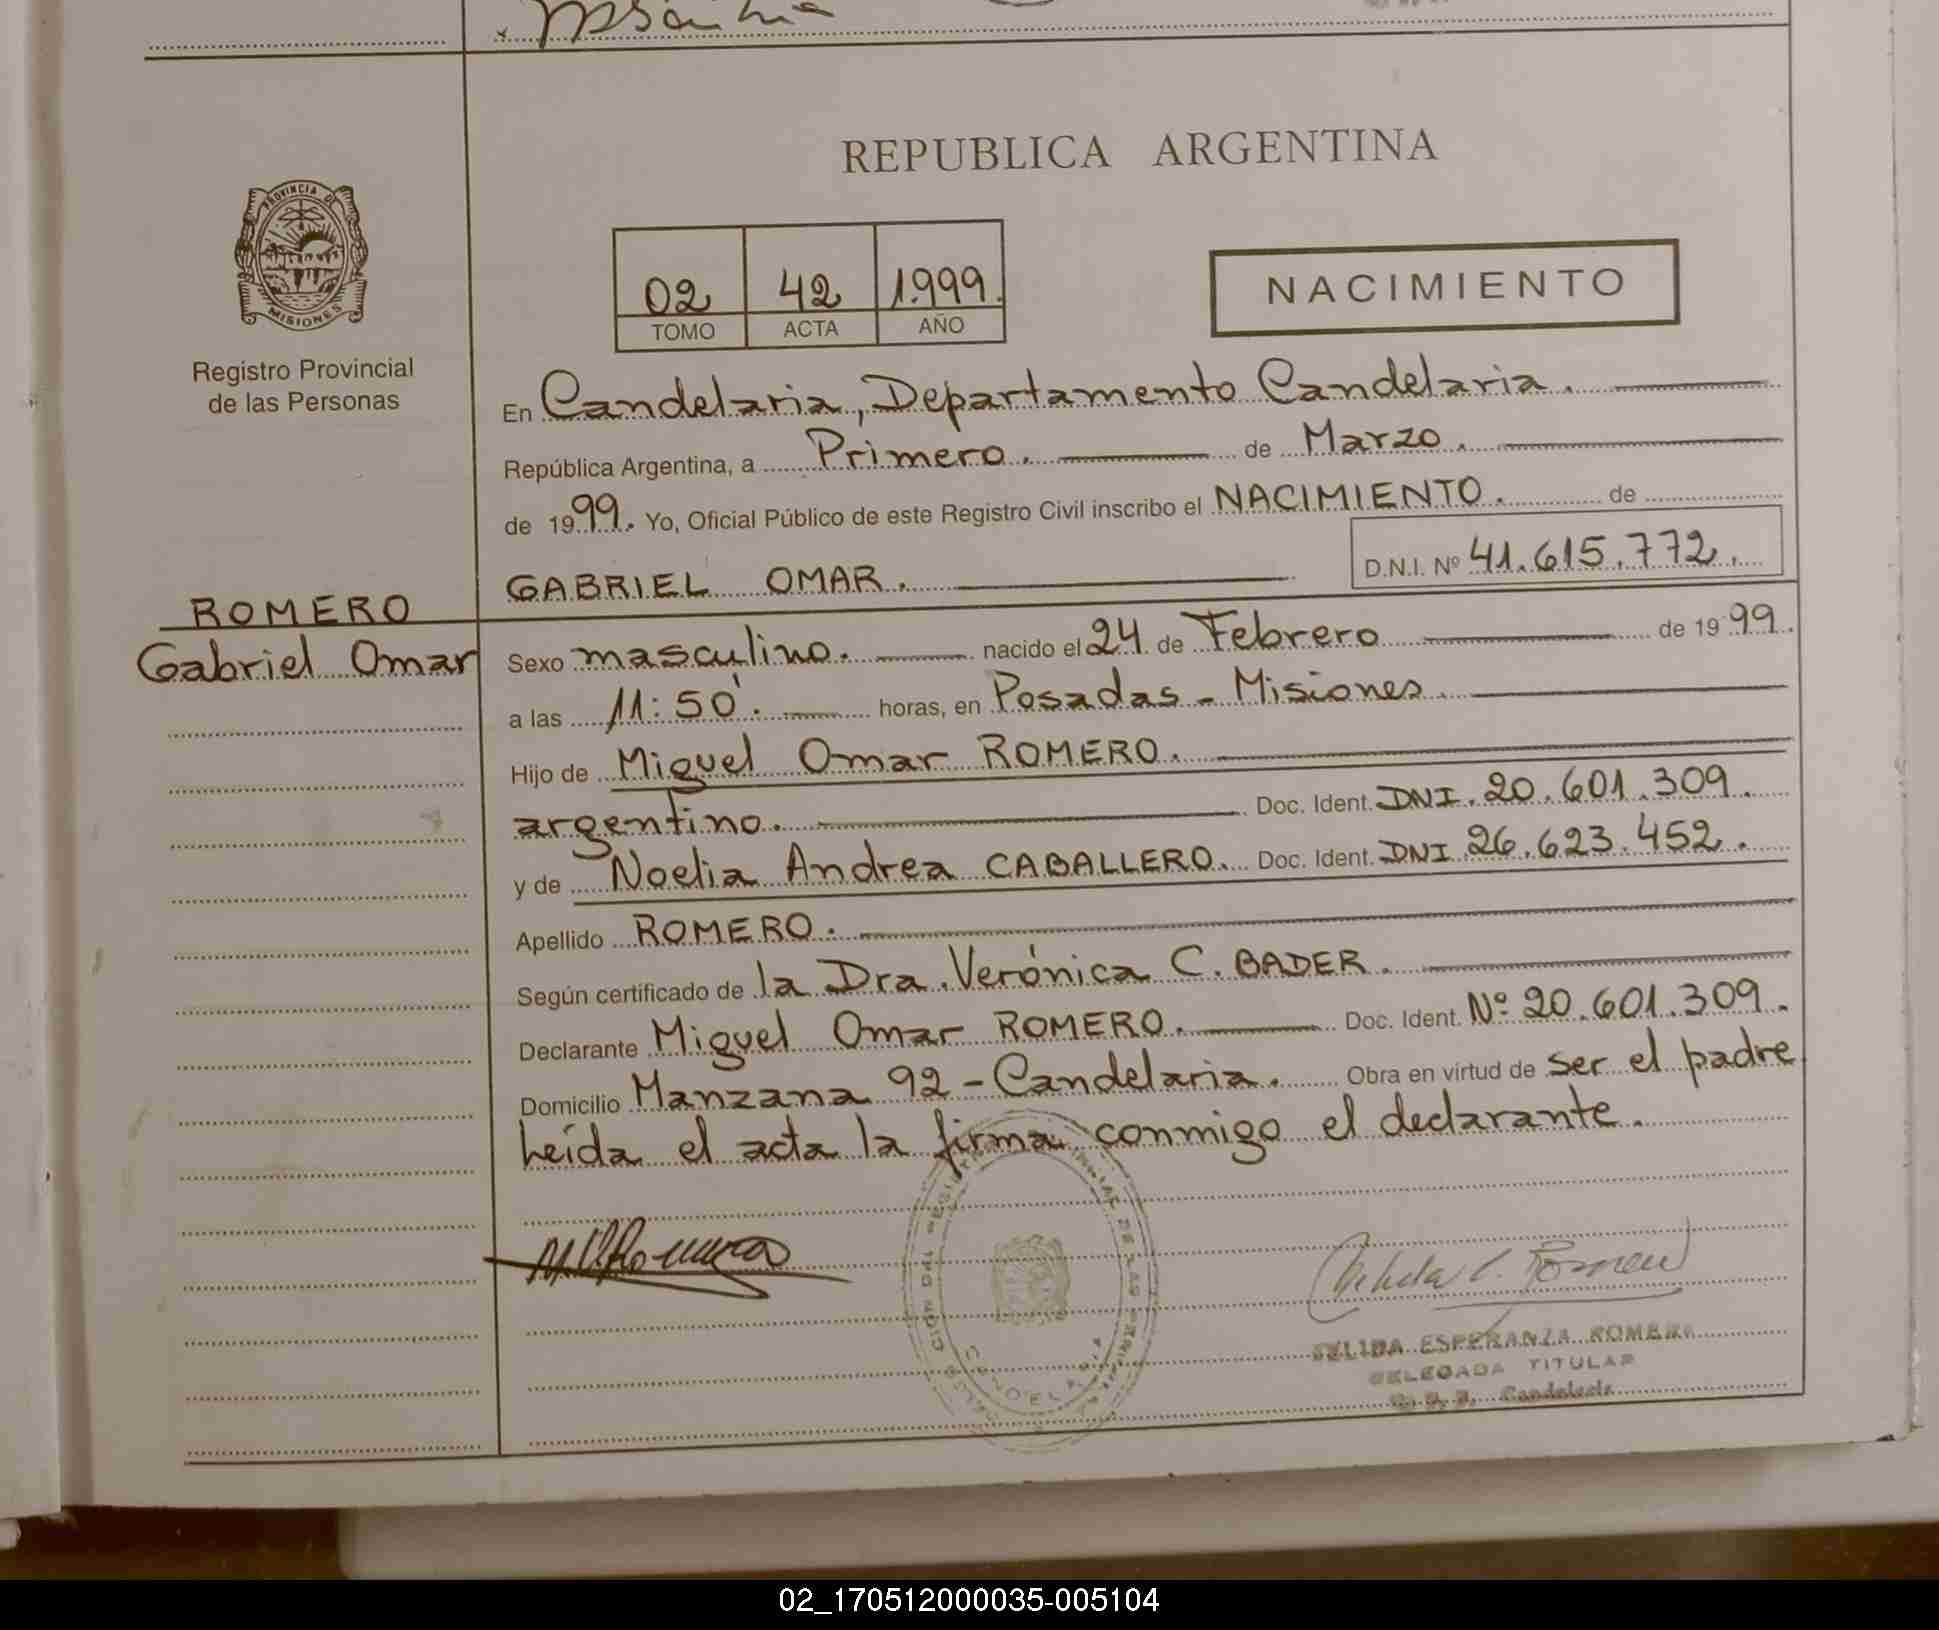 REPUBLICA ARGENTINA
PROVINCIA DE
MISIONES
Registro Provincial
de las Personas
02 42 1.999.
TOMO ACTA AÑO
NACIMIENTO
En Candelaria, Departamento Candelaria.
República Argentina, a Primero. de Marzo.
de 1999. Yo, Oficial Público de este Registro Civil inscribo el NACIMIENTO. de
D.N.I. Nº 41.615.772.
GABRIEL OMAR.
ROMERO
Gabriel Omar
Sexo masculino. nacido el 24 de Febrero de 1999.
a las 11:50'. horas, en Posadas - Misiones.
Hijo de Miguel Omar ROMERO.
argentino. Doc. Ident. DNI. 20.601.309.
y de Noelia Andrea CABALLERO. Doc. Ident. DNI 26.623.452.
Apellido ROMERO.
Según certificado de la Dra. Verónica C. BADER.
Declarante Miguel Omar ROMERO. Doc. Ident. Nº 20.601.309.
Domicilio Manzana 92 - Candelaria. Obra en virtud de ser el padre
Leída el acta la firma conmigo el declarante.
ESPERANZA ROMERO
DELEGADA TITULAR
Candelaria
02_170512000035-005104